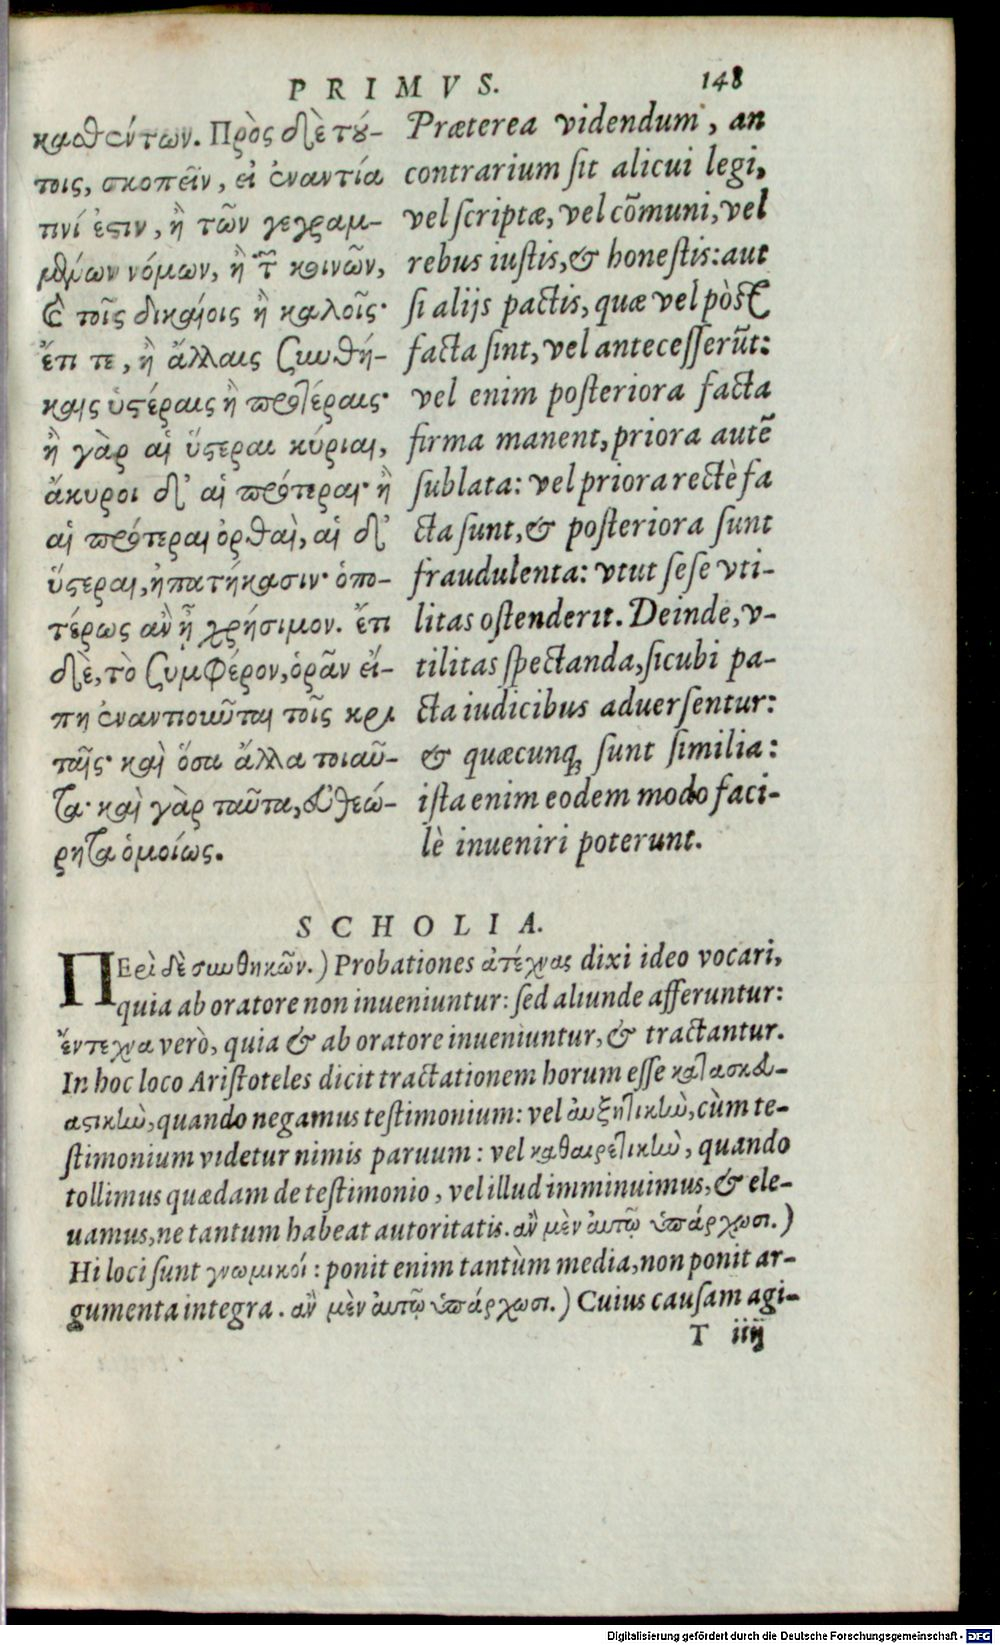 PRIMVS. 148
καθέντων. Πρὸς δὲ τού-
τοις, σκοπεῖν, εἰ ἐναντία
τινί ἐστιν, ἢ τῶν γεγραμ-
μένων νόμων, ἢ τῶν κοινῶν,
ἢ τοῖς δικαίοις ἢ καλοῖς·
ἔτι τε, ἢ ἄλλαις συνθή-
καις ὑστέραις ἢ προτέραις·
ἢ γὰρ αἱ ὕστεραι κύριαι,
ἄκυροι δ' αἱ πρότεραι· ἢ
αἱ πρότεραι ὀρθαὶ, αἱ δ'
ὕστεραι, ἠπατήκασιν· ὁπο-
τέρως ἂν ᾖ χρήσιμον. ἔτι
δὲ, τὸ συμφέρον, ὁρᾶν εἴ-
πη ἐναντιοῦται τοῖς κρι
ταῖς· καὶ ὅσα ἄλλα τοιαῦ-
τα· καὶ γὰρ ταῦτα, εὐθεώ-
ρητα ὁμοίως.
Præterea videndum, an
contrarium sit alicui legi,
vel scriptæ, vel cõmuni, vel
rebus iustis, & honestis: aut
si alijs pactis, quæ vel pòst
facta sint, vel antecesserũt:
vel enim posteriora facta
firma manent, priora autẽ
sublata: vel priora rectè fa
cta sunt, & posteriora sunt
fraudulenta: vtut sese vti-
litas ostenderit. Deinde, v-
tilitas spectanda, sicubi pa-
cta iudicibus aduersentur:
& quæcunq; sunt similia:
ista enim eodem modo faci-
lè inueniri poterunt.
SCHOLIA.
ΠΕρὶ δὲ συνθηκῶν.) Probationes ἀτέχνας dixi ideo vocari,
quia ab oratore non inueniuntur: sed aliunde afferuntur:
ἔντεχνα verò, quia & ab oratore inueniuntur, & tractantur.
In hoc loco Aristoteles dicit tractationem horum esse κατασκευ-
αστικὴν, quando negamus testimonium: vel αὐξητικὴν, cùm te-
stimonium videtur nimis paruum: vel καθαιρετικὴν, quando
tollimus quædam de testimonio, vel illud imminuimus, & ele-
uamus, ne tantum habeat autoritatis. ἂν μὲν αὐτῷ ὑπάρχωσι.)
Hi loci sunt γνωμικοί: ponit enim tantùm media, non ponit ar-
gumenta integra. ἂν μὲν αὐτῷ ὑπάρχωσι.) Cuius causam agi-
T iiij
Digitalisierung gefördert durch die Deutsche Forschungsgemeinschaft - DFG